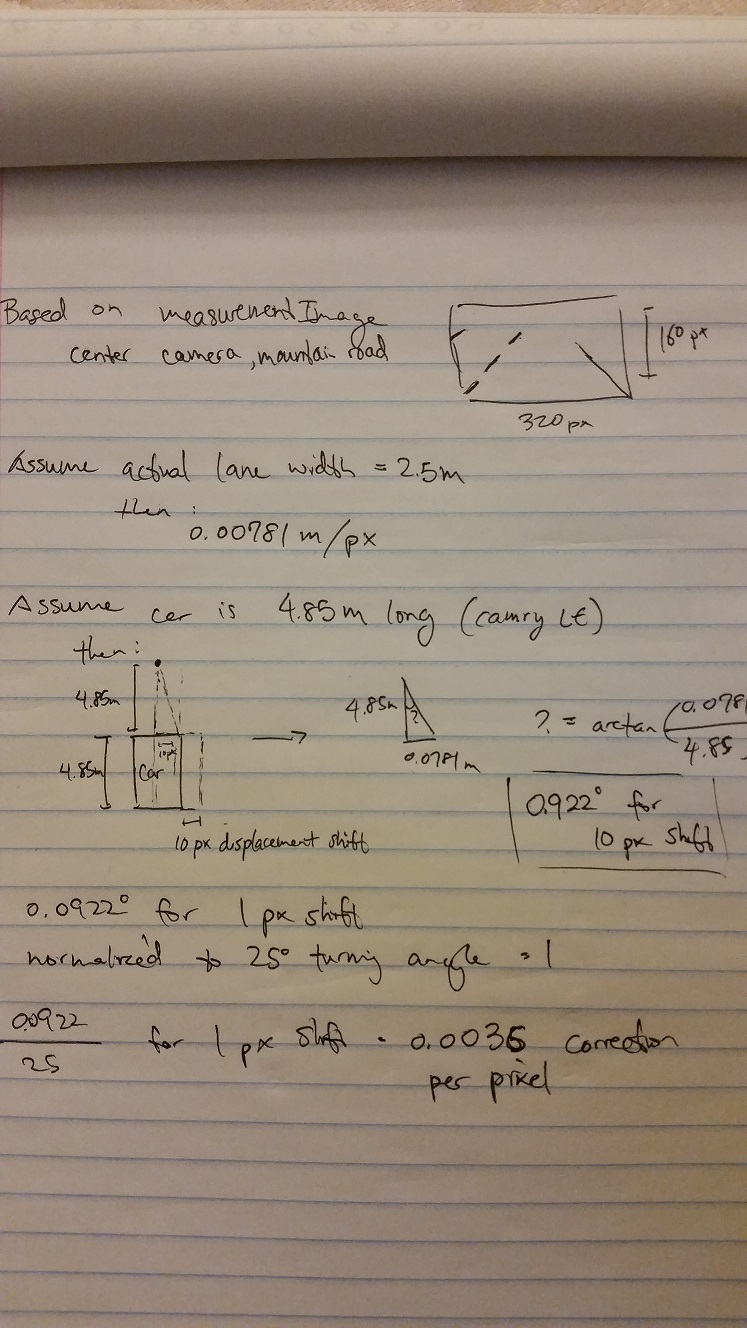 Based on measurement Image
center camera, mountain road
160 px
320 px
Assume actual lane width = 2.5m
then :
0.00781 m/px
Assume car is 4.85m long (camry LE)
then :
4.85m
4.85m
car
10px
10 px displacement shift
4.85m
?
0.0781 m
? = arctan (0.0781
4.85
0.922° for
10 px shift
0.0922° for 1 px shift
normalized to 25° turning angle = 1
0.0922
25
for 1 px shift = 0.0036 correction
per pixel